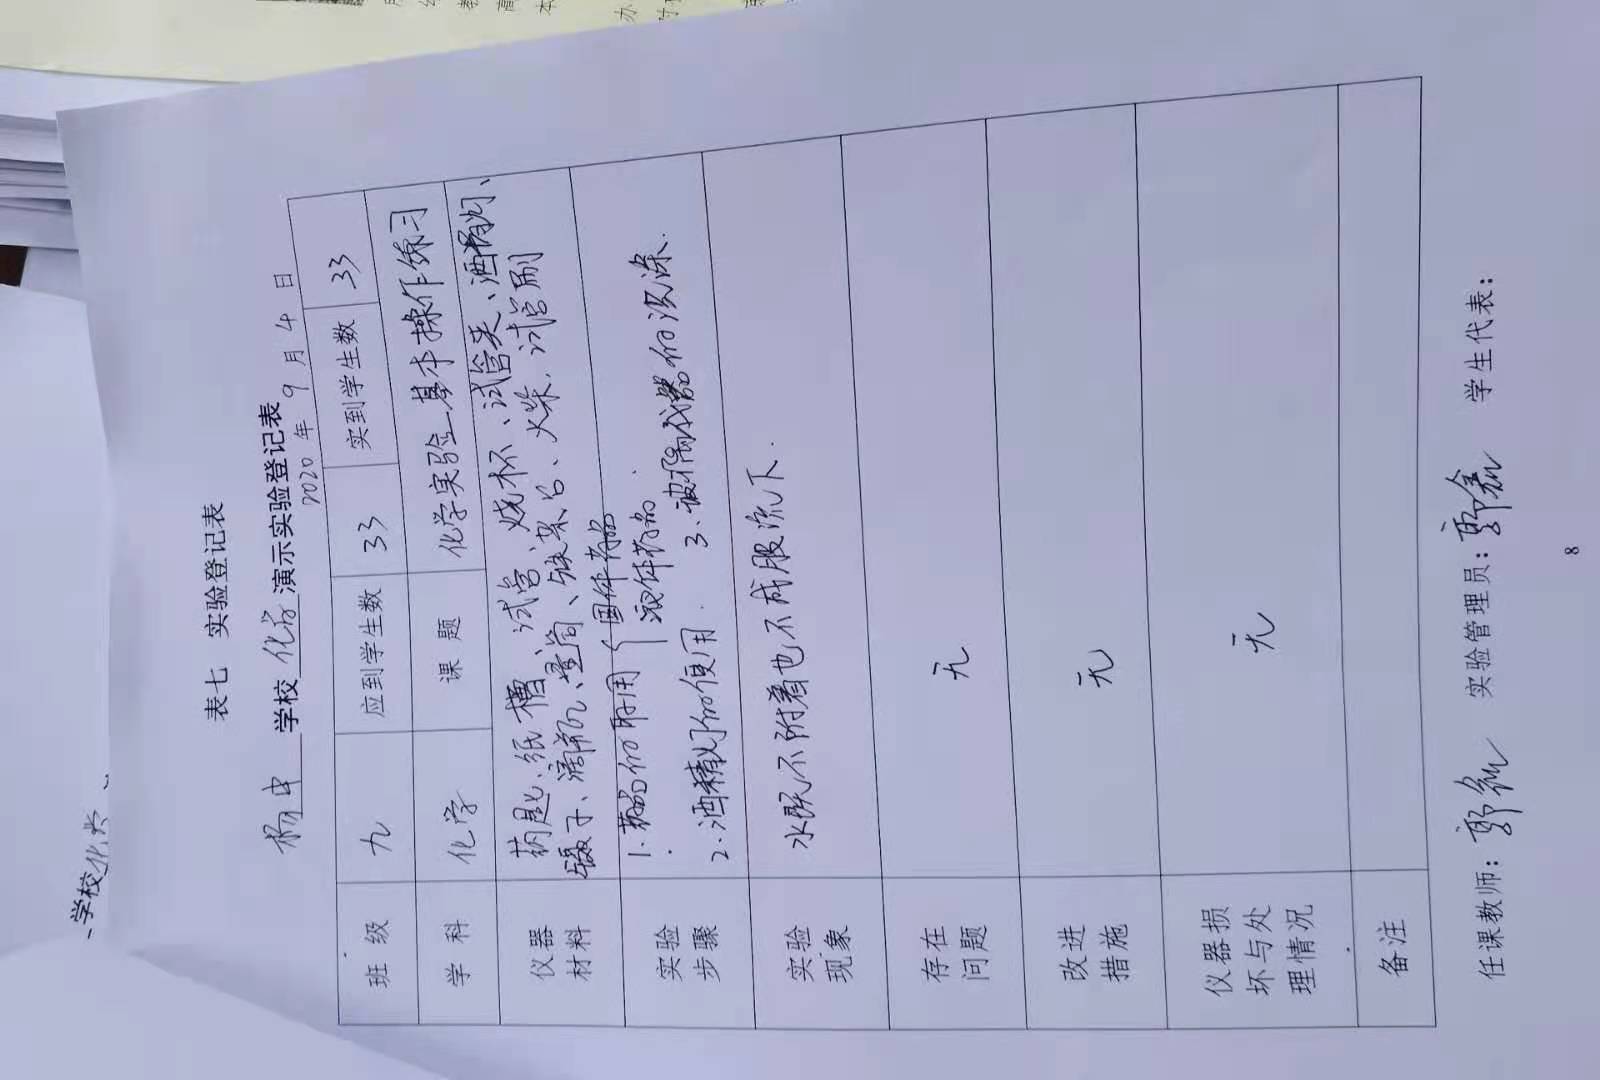 表七 实验登记表
杨中 学校 化学 演示实验登记表
2020 年 9 月 4 日
班级 九 应到学生数 33 实到学生数 33
学科 化学 课题 化学实验基本操作练习
仪器材料 药匙、纸槽、试管、烧杯、试管夹、酒精灯、
镊子、滴瓶、量筒、铁架台、火柴、试管刷
实验步骤 1.药品的取用 { 固体药品
液体药品
2.酒精灯的使用. 3.玻璃仪器的洗涤.
实验现象 水既不附着也不成股流下.
存在问题 无
改进措施 无
仪器损坏与处理情况 无
备注
任课教师: 郭 实验管理员: 郭鑫 学生代表:
8
学校 化学